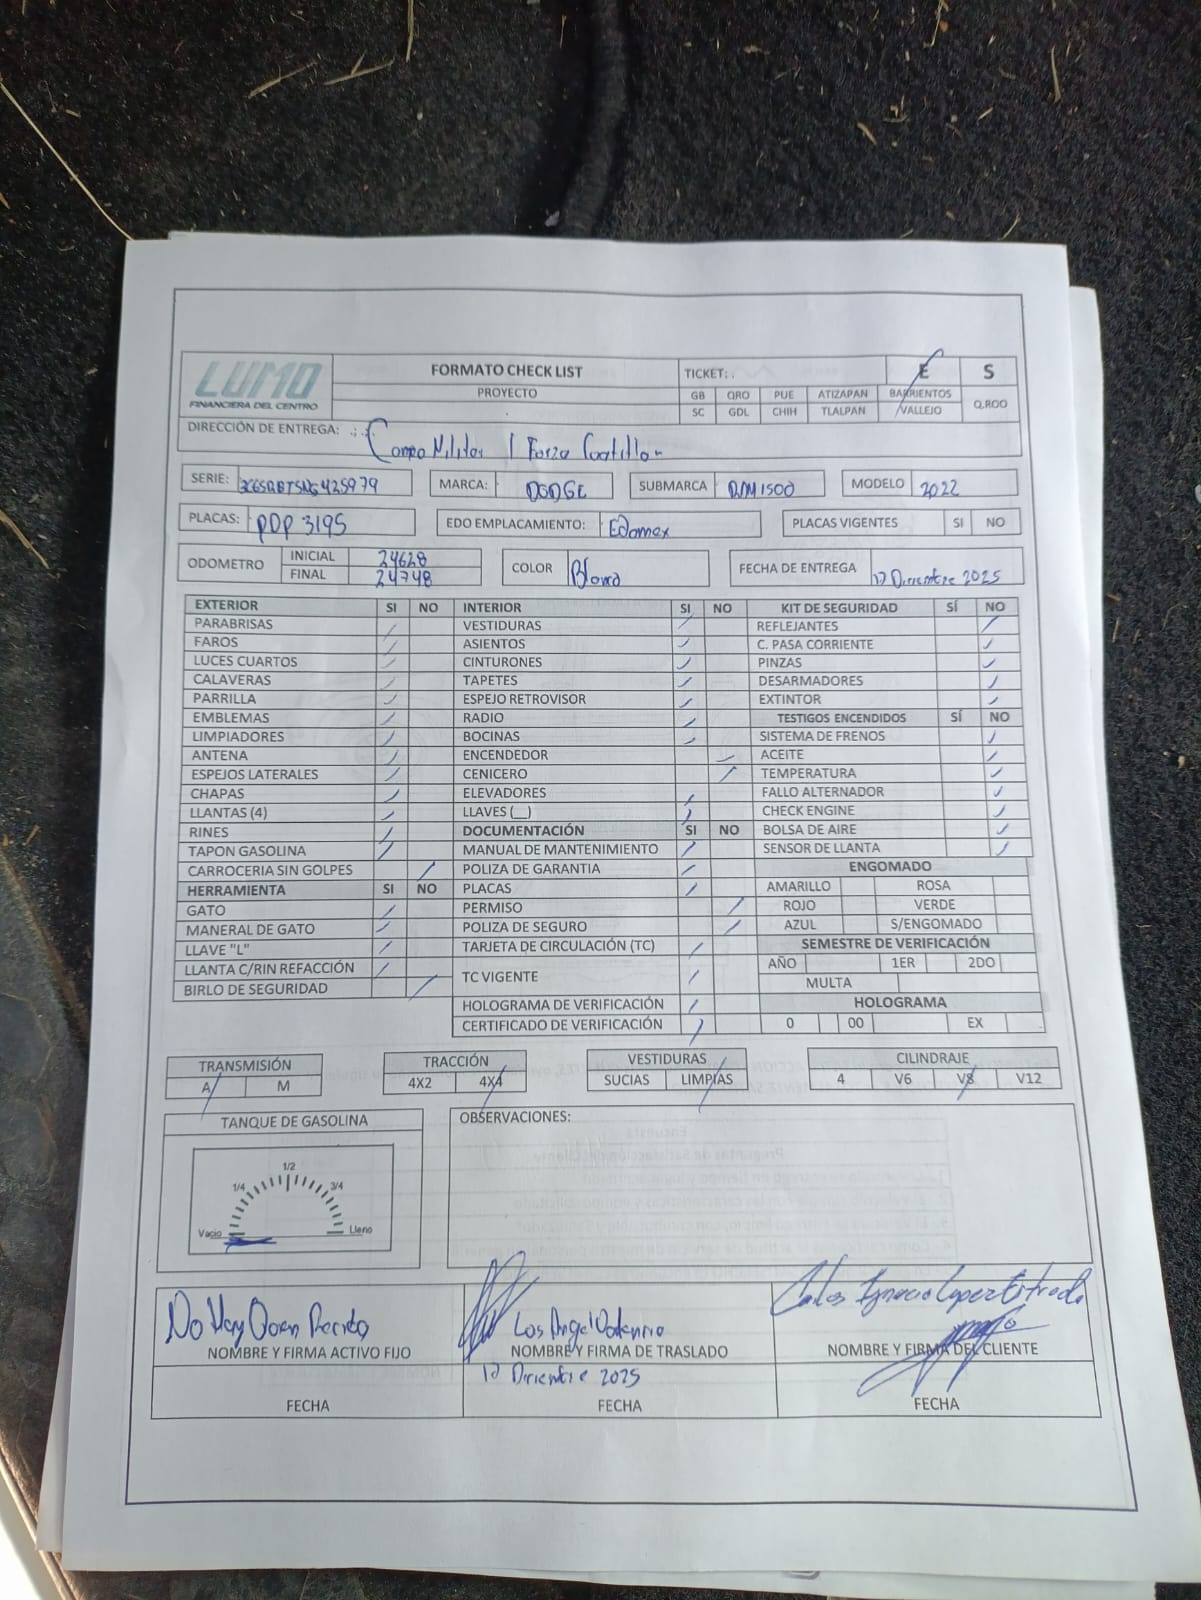 LUMO
FINANCIERA DEL CENTRO
FORMATO CHECK LIST
PROYECTO
TICKET: .
E S
GB QRO PUE ATIZAPAN BARRIENTOS
SC GDL CHIH TLALPAN VALLEJO
Q.ROO
DIRECCIÓN DE ENTREGA:
Campo Militar 1
SERIE:
MARCA: DODGE
SUBMARCA RAM 1500
MODELO 2022
PLACAS: PDP 3195
EDO EMPLACAMIENTO: Edomex
PLACAS VIGENTES SI NO
ODOMETRO
INICIAL 24628
FINAL 24748
COLOR
FECHA DE ENTREGA Diciembre 2025
EXTERIOR SI NO
PARABRISAS
FAROS
LUCES CUARTOS
CALAVERAS
PARRILLA
EMBLEMAS
LIMPIADORES
ANTENA
ESPEJOS LATERALES
CHAPAS
LLANTAS (4)
RINES
TAPON GASOLINA
CARROCERIA SIN GOLPES
HERRAMIENTA SI NO
GATO
MANERAL DE GATO
LLAVE "L"
LLANTA C/RIN REFACCIÓN
BIRLO DE SEGURIDAD
INTERIOR SI NO
VESTIDURAS
ASIENTOS
CINTURONES
TAPETES
ESPEJO RETROVISOR
RADIO
BOCINAS
ENCENDEDOR
CENICERO
ELEVADORES
LLAVES (__)
DOCUMENTACIÓN SI NO
MANUAL DE MANTENIMIENTO
POLIZA DE GARANTIA
PLACAS
PERMISO
POLIZA DE SEGURO
TARJETA DE CIRCULACIÓN (TC)
TC VIGENTE
HOLOGRAMA DE VERIFICACIÓN
CERTIFICADO DE VERIFICACIÓN
KIT DE SEGURIDAD SÍ NO
REFLEJANTES
C. PASA CORRIENTE
PINZAS
DESARMADORES
EXTINTOR
TESTIGOS ENCENDIDOS SÍ NO
SISTEMA DE FRENOS
ACEITE
TEMPERATURA
FALLO ALTERNADOR
CHECK ENGINE
BOLSA DE AIRE
SENSOR DE LLANTA
ENGOMADO
AMARILLO ROSA
ROJO VERDE
AZUL S/ENGOMADO
SEMESTRE DE VERIFICACIÓN
AÑO 1ER 2DO
MULTA
HOLOGRAMA
0 00 EX
TRANSMISIÓN
A M
TRACCIÓN
4X2 4X4
VESTIDURAS
SUCIAS LIMPIAS
CILINDRAJE
4 V6 V8 V12
TANQUE DE GASOLINA
1/2
1/4 3/4
Vacio Lleno
OBSERVACIONES:
No Hay Quien Reciba
NOMBRE Y FIRMA ACTIVO FIJO
FECHA
NOMBRE Y FIRMA DE TRASLADO
Diciembre 2025
FECHA
Carlos Ignacio Lopez Estrada
NOMBRE Y FIRMA DEL CLIENTE
FECHA